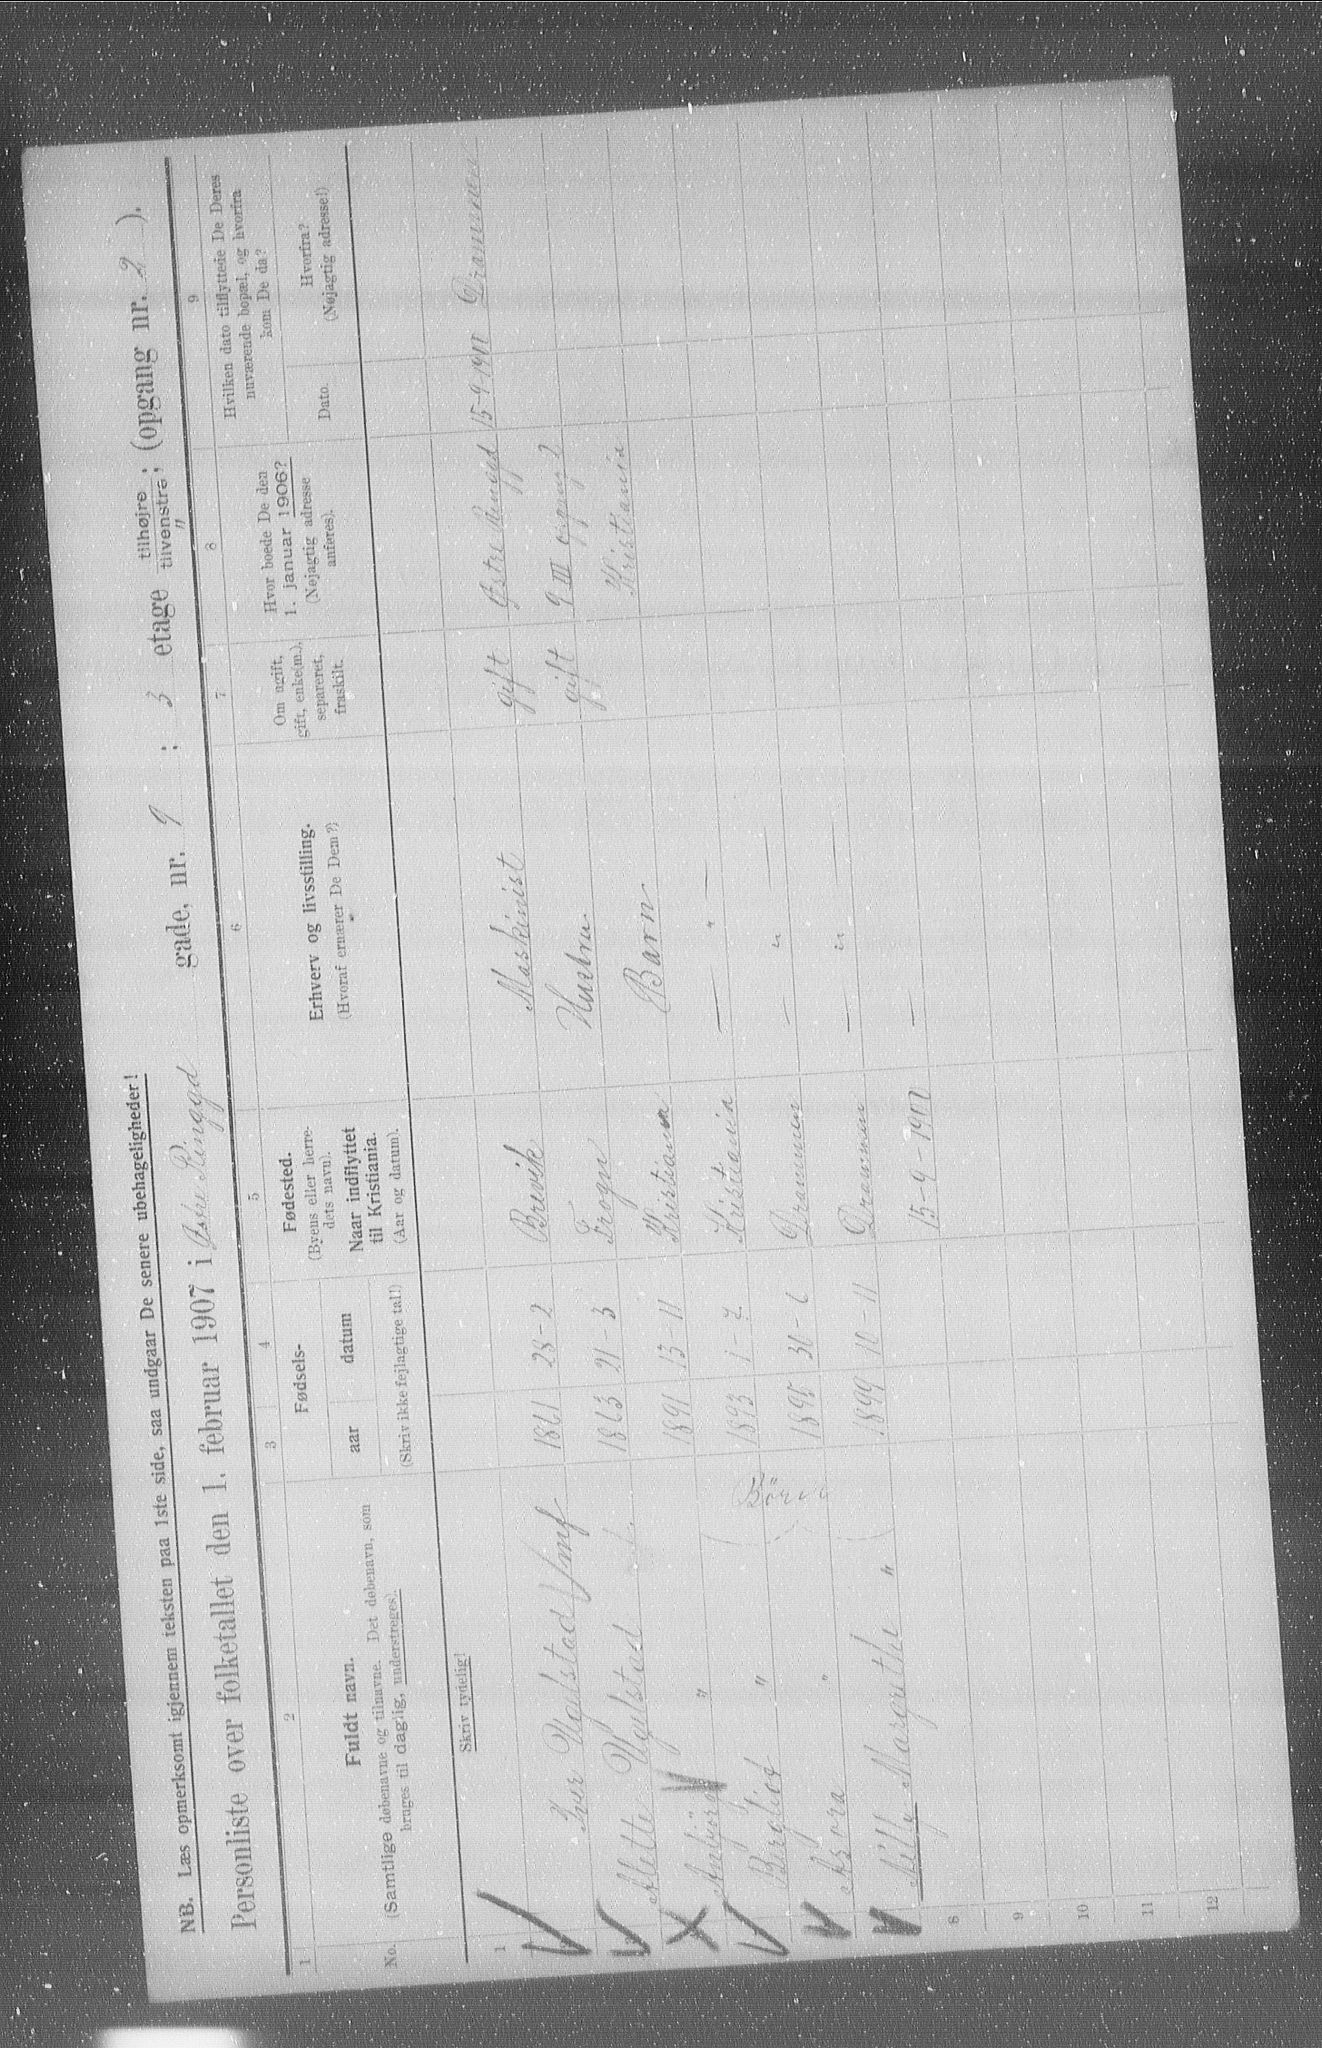 NB. Læs opmerksomt igjennem teksten paa 1ste side, saa undgaar De senere ubehageligheder!
Personliste over folketallet den 1. februar 1907 i Østre Ringgd gade, nr. 9 ; 3 etage tilhøjre ; tilvenstre ; (opgang nr. 2 ).
1 2 3 4 5 6 7 8 9
No.
Fuldt navn.
(Samtlige døbenavne og tilnavne. Det døbenavn, som
bruges til daglig, understreges).
Fødsels-
aar datum
(Skriv ikke fejlagtige tal!)
Fødested.
(Byens eller herre-
dets navn).
Naar indflyttet
til Kristiania.
(Aar og datum).
Erhverv og livsstilling.
(Hvoraf ernærer De Dem?)
Om ugift,
gift, enke(m.),
separeret,
fraskilt.
Hvor boede De den
1. januar 1906?
(Nøjagtig adresse
anføres).
Hvilken dato tilflyttede De Deres
nuværende bopæl, og hvorfra
kom De da?
Dato.
Hvorfra?
(Nøjagtig adresse!)
Skriv tydelig!
1 Ivar Ugelstad 1861 23-2 Brevik Maskinist gift Østre Ringgd 15-9 1902 Drammen
Alette Ugelstad 1863 21-3 Frogn Hustru gift 9 III opgang 2
Anbjørg " 1891 13-11 Kristiania Barn Kristiania
Bergliot " Børn 1893 1-2 Kristiania — " —
Asora " 1895 30-6 Drammen — " —
Nelly Margrethe " 1899 10-11 Drammen — " —
8 15-9-1902 —
9
10
11
12